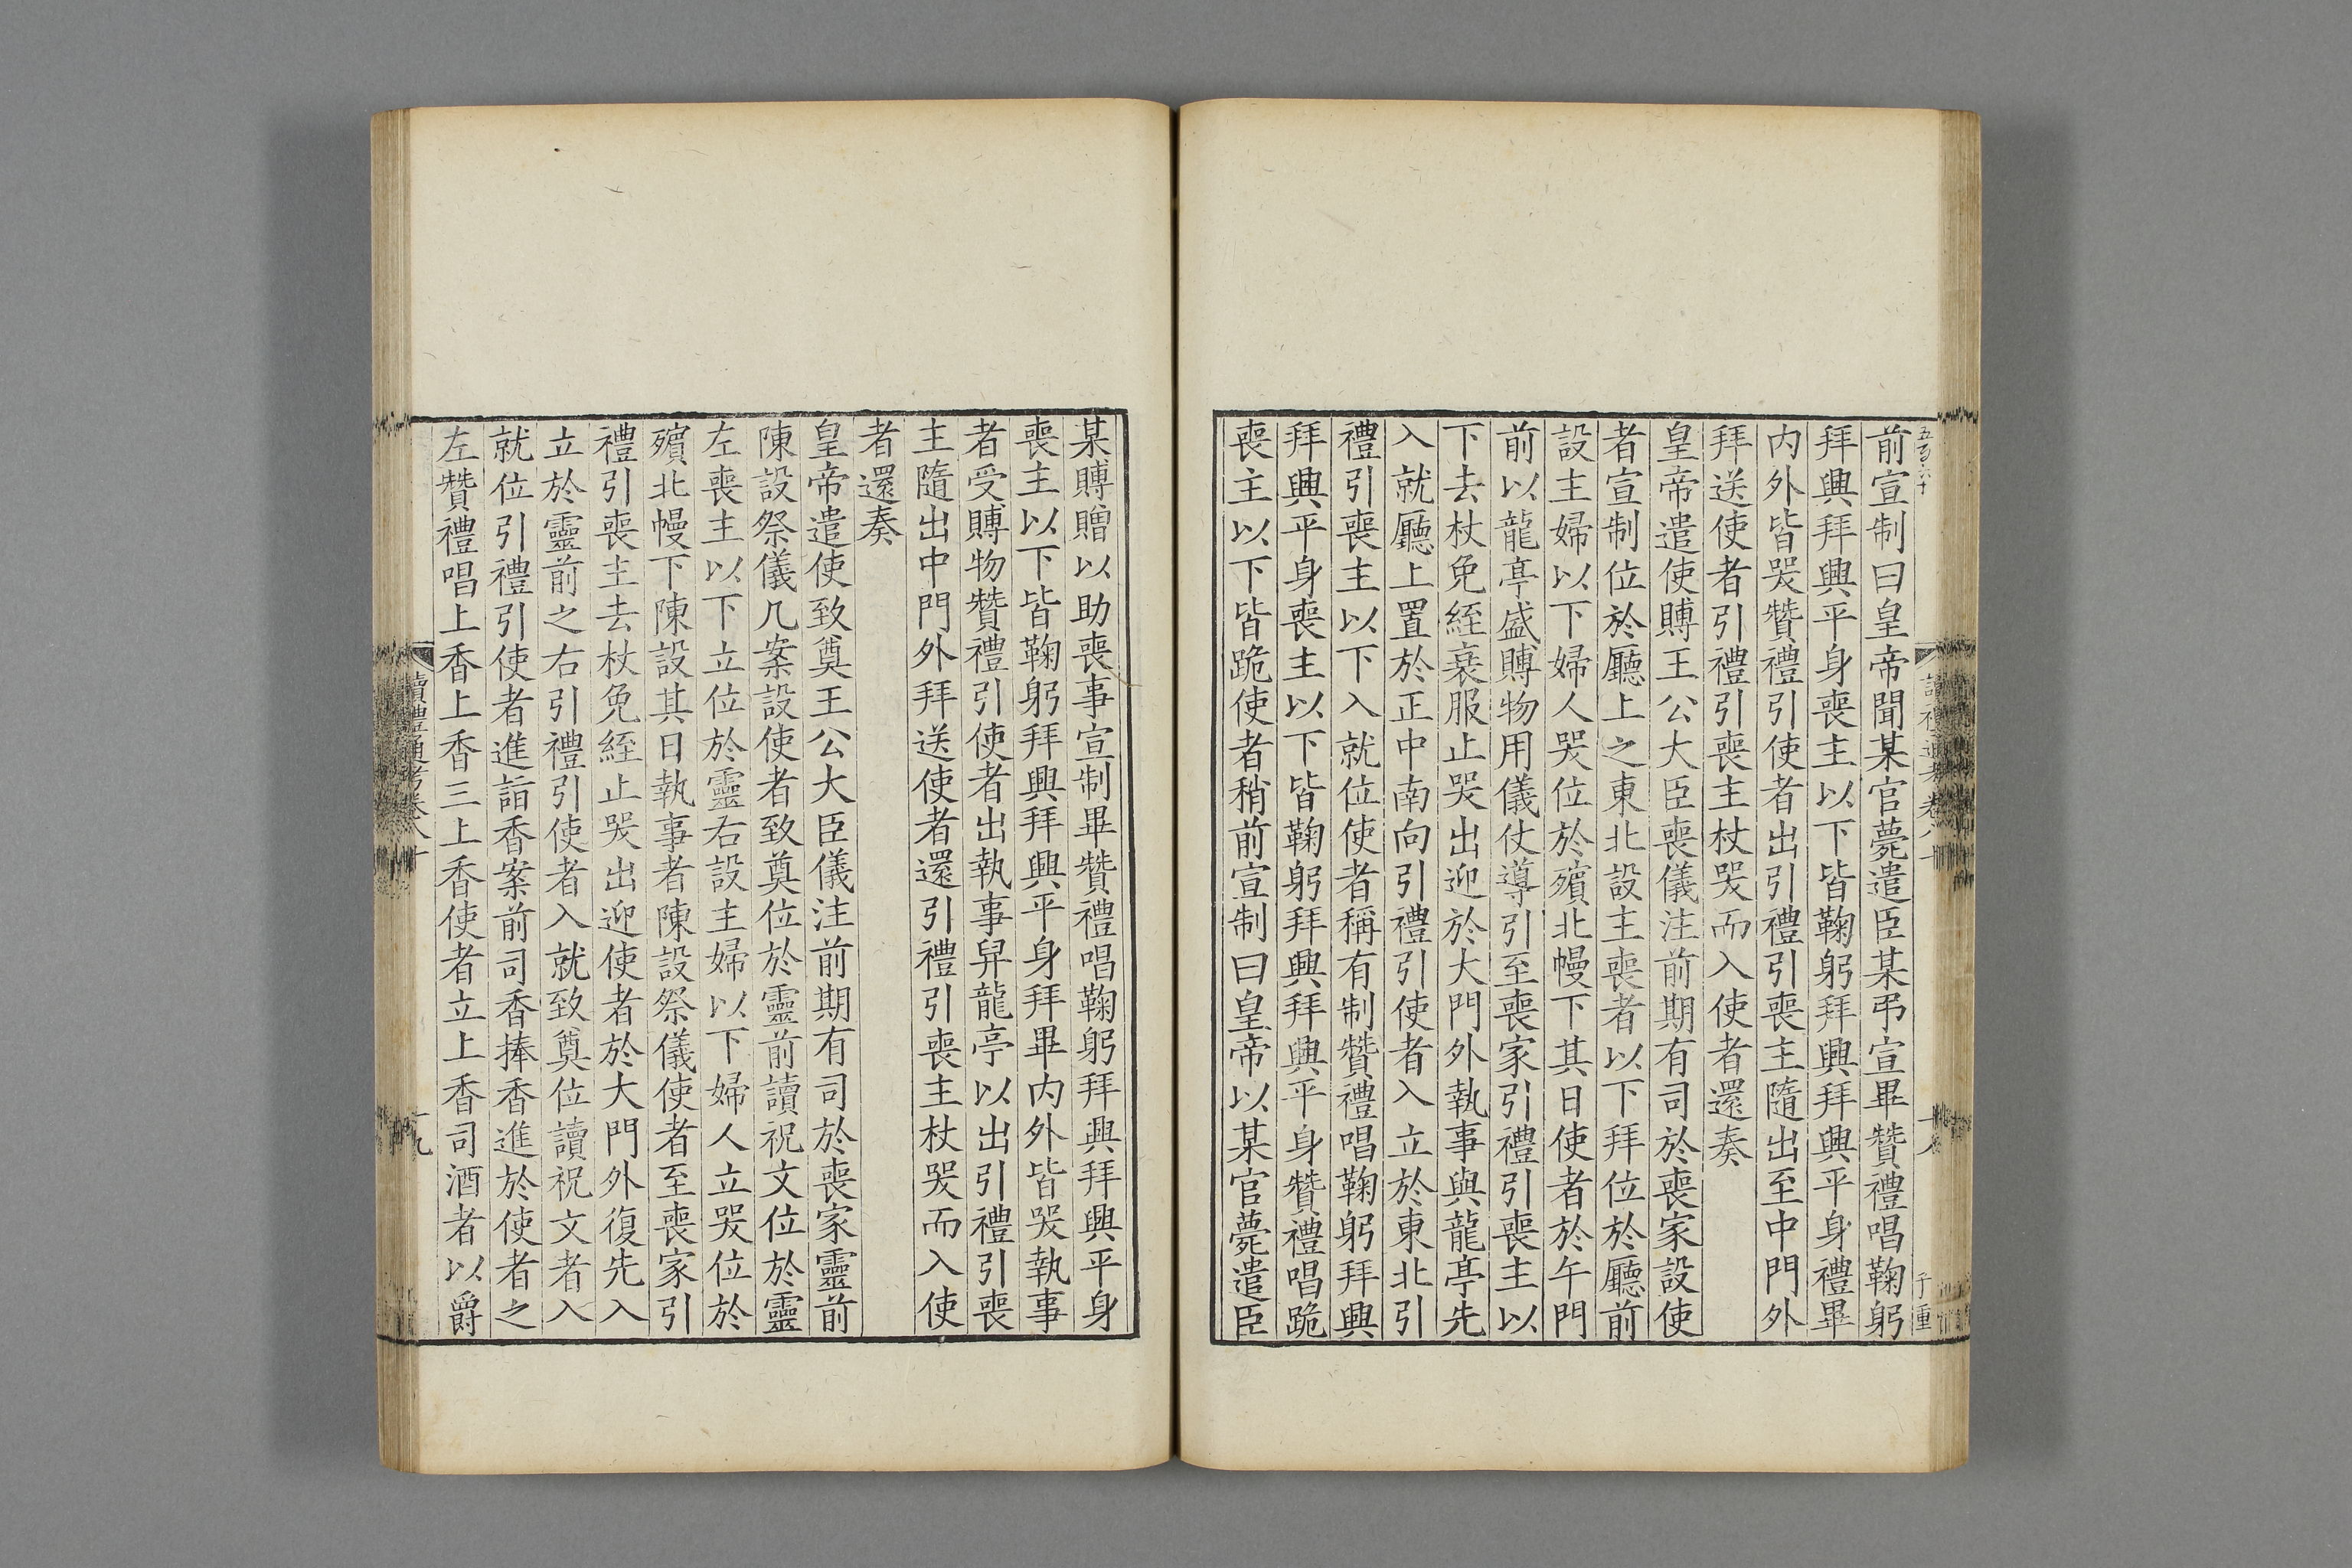 前宣制曰皇帝聞某官薨遣臣某弔宣畢贊禮唱鞠躬
拜興拜興平身喪主以下皆鞠躬拜興拜興平身禮畢
内外皆哭贊禮引使者出引禮引喪主隨出至中門外
拜送使者引禮引喪主杖哭而入使者還奏
皇帝遣使賻王公大臣喪儀注前期有司於喪家設使
者宣制位於廳上之東北設主喪者以下拜位於廳前
設主婦以下婦人哭位於殯北幔下其日使者於午門
前以龍亭盛賻物用儀仗導引至喪家引禮引喪主以
下去杖免絰衰服止哭出迎於大門外執事與龍亭先
入就廳上置於正中南向引禮引使者入立於東北引
禮引喪主以下入就位使者稱有制贊禮唱鞠躬拜興
拜興平身喪主以下皆鞠躬拜興拜興平身贊禮唱跪
喪主以下皆跪使者稍前宣制曰皇帝以某官薨遣臣
某賻贈以助喪事宣制畢贊禮唱鞠躬拜興拜興平身
喪主以下皆鞠躬拜興拜興平身拜畢内外皆哭執事
者受賻物贊禮引使者出執事舁龍亭以出引禮引喪
主隨出中門外拜送使者還引禮引喪主杖哭而入使
者還奏
皇帝遣使致奠王公大臣儀注前期有司於喪家靈前
陳設祭儀几案設使者致奠位於靈前讀祝文位於靈
左喪主以下立位於靈右設主婦以下婦人立哭位於
殯北幔下陳設其日執事者陳設祭儀使者至喪家引
禮引喪主去杖免絰止哭出迎使者於大門外復先入
立於靈前之右引禮引使者入就致奠位讀祝文者入
就位引禮引使者進詣香案前司香捧香進於使者之
左贊禮唱上香上香三上香使者立上香司酒者以爵
讀禮通考卷八十
十九
子重